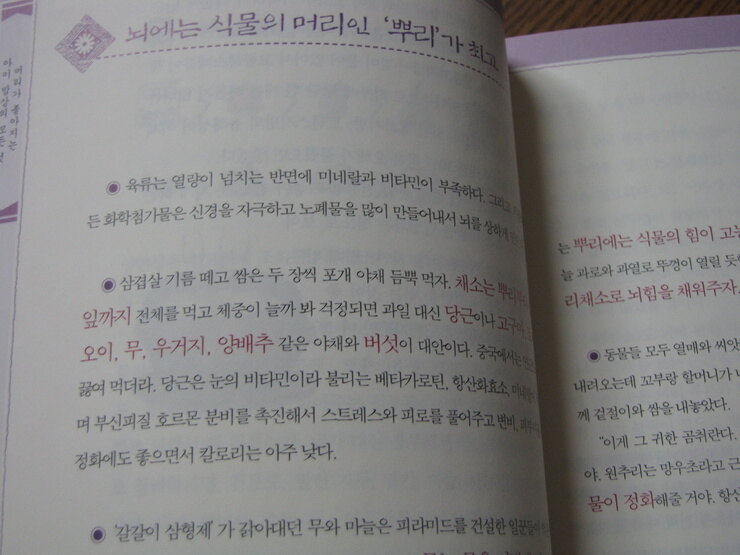 머리가 좋아지는
아이 밥상의 모든 것
뇌에는 식물의 머리인 '뿌리'가 최고
◉ 육류는 열량이 넘치는 반면에 미네랄과 비타민이 부족하다. 그리고
든 화학첨가물은 신경을 자극하고 노폐물을 많이 만들어내서 뇌를 상하게
◉ 삼겹살 기름 떼고 쌈은 두 장씩 포개 야채 듬뿍 먹자. 채소는 뿌리부터
잎까지 전체를 먹고 체중이 늘까 봐 걱정되면 과일 대신 당근이나 고구마,
오이, 무, 우거지, 양배추 같은 야채와 버섯이 대안이다. 중국에서는
끓여 먹더라. 당근은 눈의 비타민이라 불리는 베타카로틴, 항산화효소,
며 부신피질 호르몬 분비를 촉진해서 스트레스와 피로를 풀어주고 변비,
정화에도 좋으면서 칼로리는 아주 낮다.
◉ '갈갈이 삼형제'가 갉아대던 무와 마늘은 피라미드를 건설한 일꾼들이
는 뿌리에는 식물의 힘이
늘 과로와 과열로 뚜껑이 열릴
리채소로 뇌험을 채워주자.
◉ 동물들 모두 열매와 씨앗
내려오는데 꼬부랑 할머니가
께 겉절이와 쌈을 내놓았다.
"이게 그 귀한 곰취란다.
야. 원추리는 망우초라고
물이 정화해줄 거야.